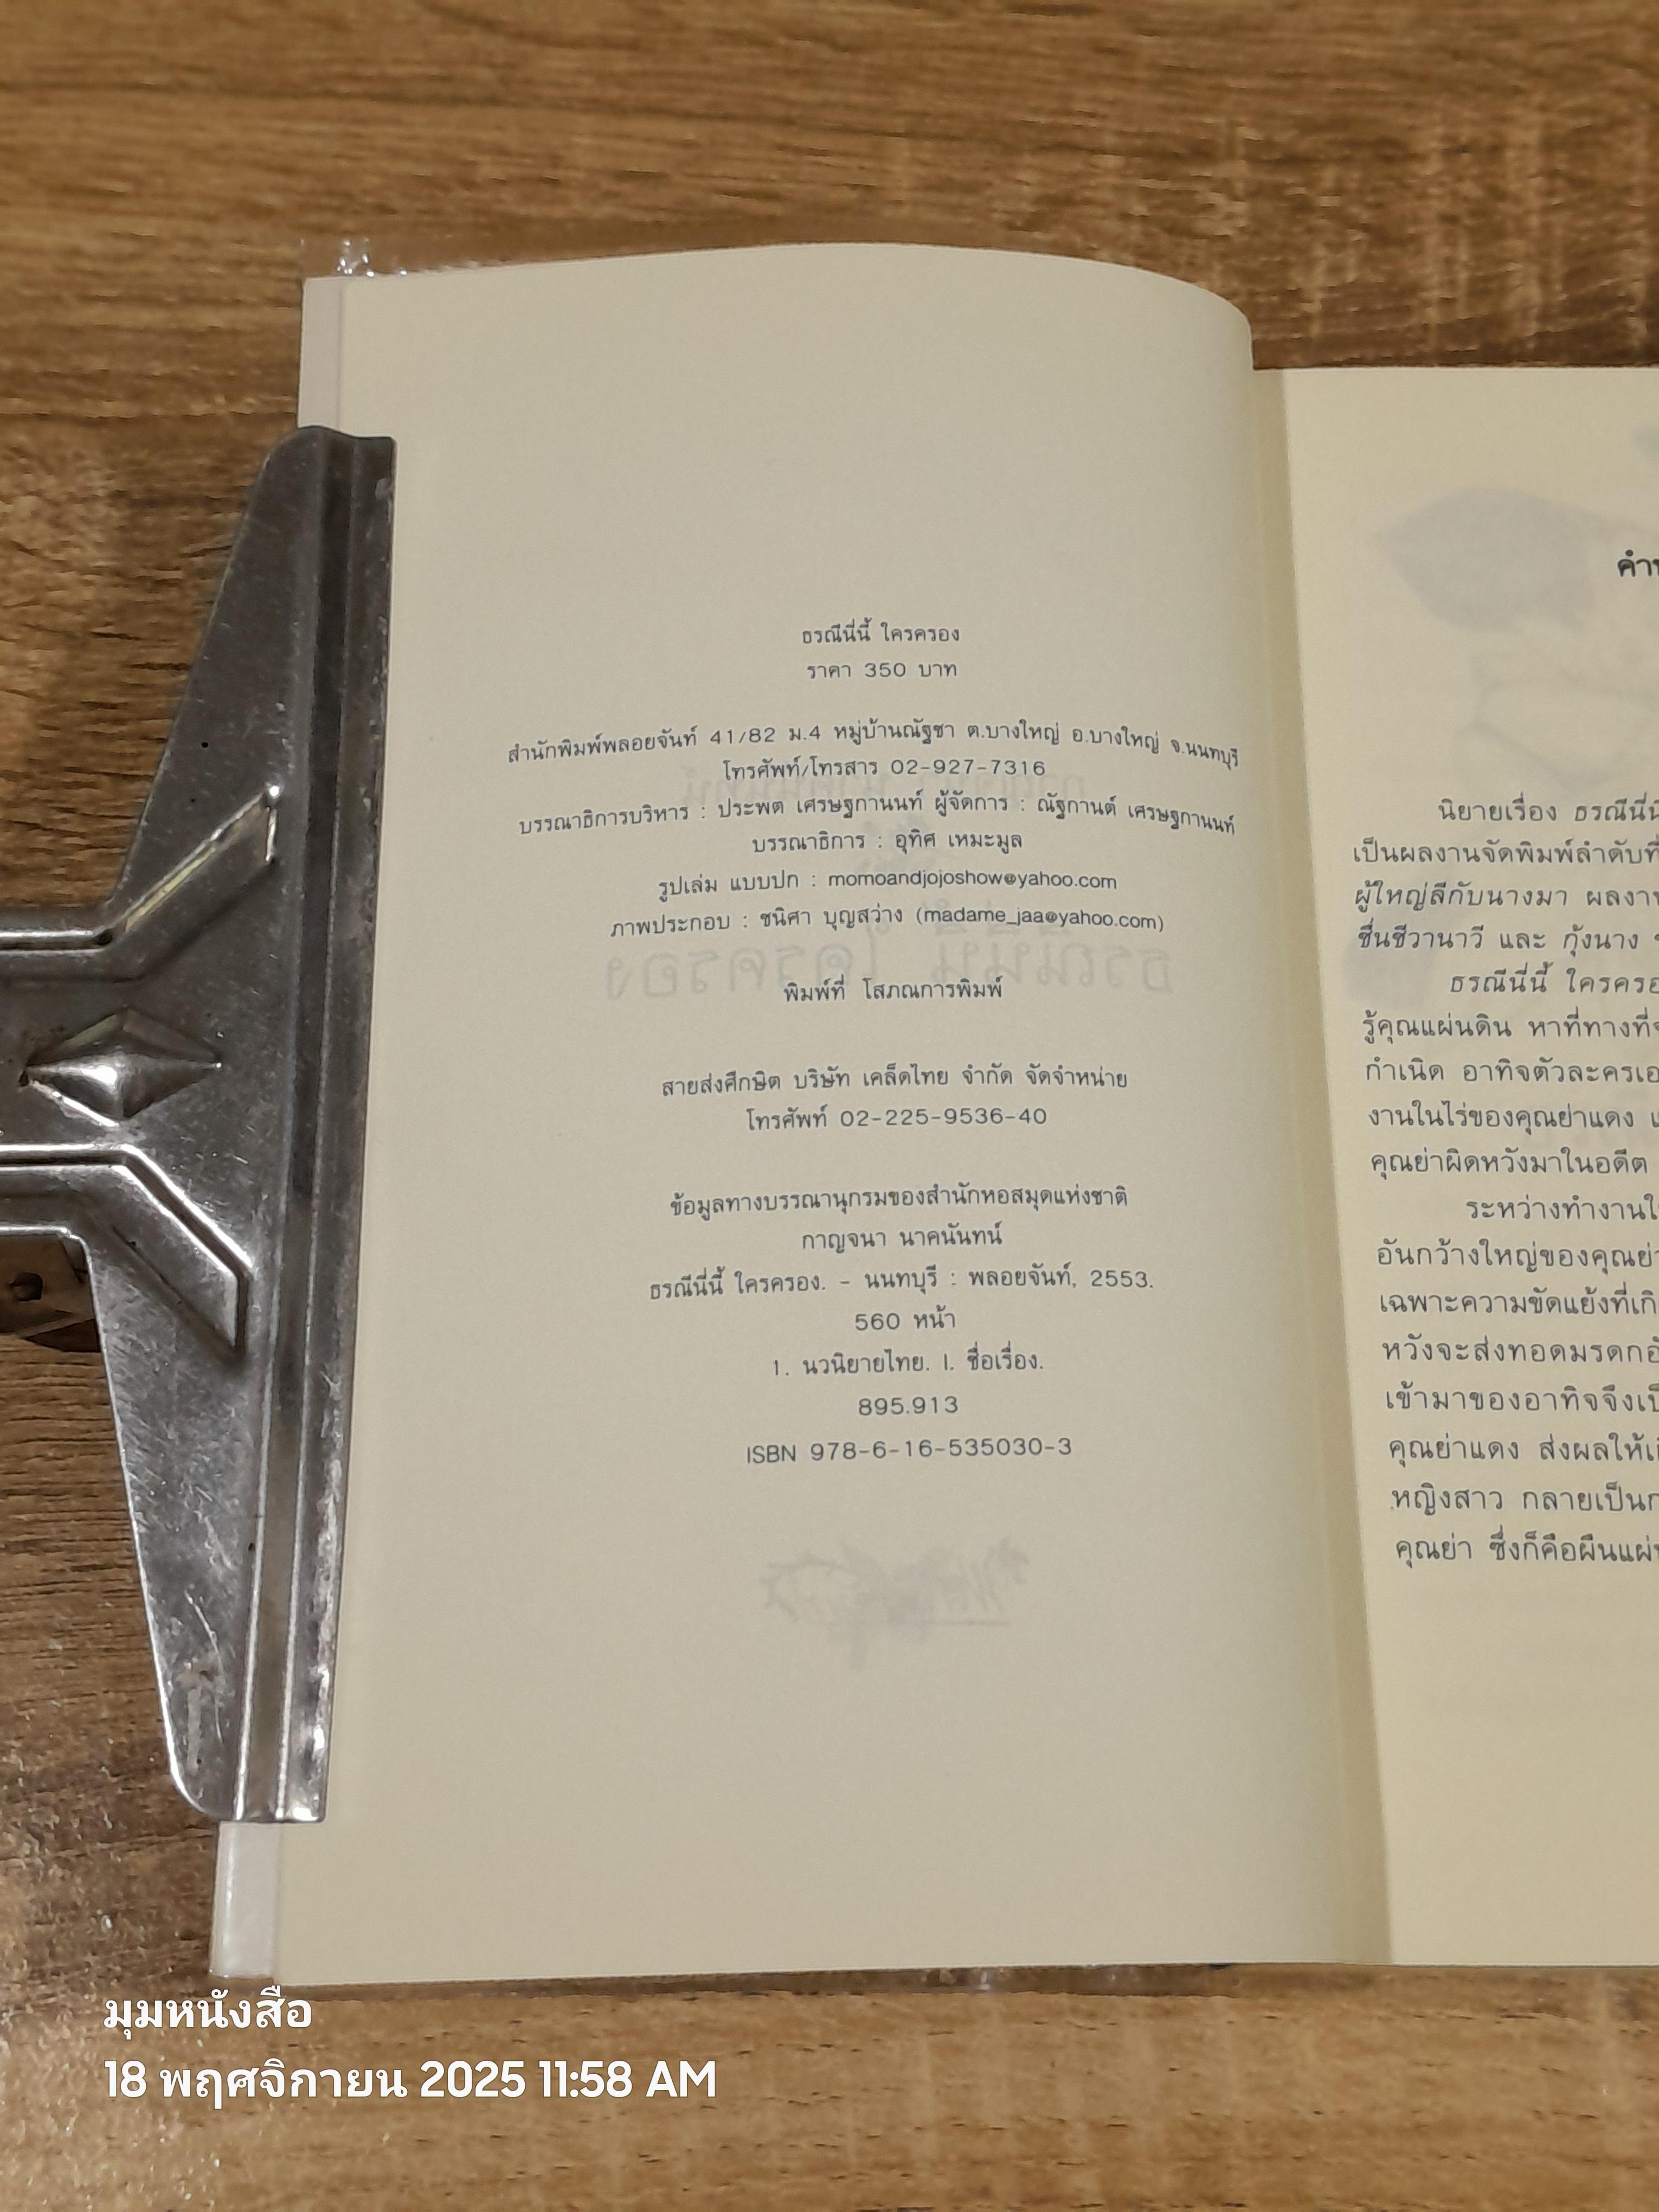 ธรณีนี่นี้ ใครครอง
ราคา 350 บาท
สำนักพิมพ์พลอยจันท์ 41/82 ม.4 หมู่บ้านณัฐชา ต.บางใหญ่ อ.บางใหญ่ จ.นนทบุรี
โทรศัพท์/โทรสาร 02-927-7316
บรรณาธิการบริหาร : ประพต เศรษฐกานนท์ ผู้จัดการ : ณัฐกานต์ เศรษฐกานนท์
บรรณาธิการ : อุทิศ เหมะมูล
รูปเล่ม แบบปก : momoandjojoshow@yahoo.com
ภาพประกอบ : ชนิศา บุญสว่าง (madame_jaa@yahoo.com)
พิมพ์ที่ โสภณการพิมพ์
สายส่งศึกษิต บริษัท เคล็ดไทย จำกัด จัดจำหน่าย
โทรศัพท์ 02-225-9536-40
ข้อมูลทางบรรณานุกรมของสำนักหอสมุดแห่งชาติ
กาญจนา นาคนันทน์
ธรณีนี่นี้ ใครครอง. - นนทบุรี : พลอยจันท์, 2553.
560 หน้า
1. นวนิยายไทย. I. ชื่อเรื่อง.
895.913
ISBN 978-6-16-535030-3
นิยายเรื่อง ธรณีนี่นี้
เป็นผลงานจัดพิมพ์ลำดับที่
ผู้ใหญ่ลีกับนางมา ผลงาน
ชื่นชีวานาวี และ กุ้งนาง
ธรณีนี่นี้ ใครครอ
รู้คุณแผ่นดิน หาที่ทางที่
กำเนิด อาทิจตัวละครเอ
งานในไร่ของคุณย่าแดง
คุณย่าผิดหวังมาในอดีต
ระหว่างทำงานใ
อันกว้างใหญ่ของคุณย่า
เฉพาะความขัดแย้งที่เกิ
หวังจะส่งทอดมรดกอั
เข้ามาของอาทิจจึงเป็
คุณย่าแดง ส่งผลให้เกิ
หญิงสาว กลายเป็นก
คุณย่า ซึ่งก็คือผืนแผ่น
มุมหนังสือ
18 พฤศจิกายน 2025 11:58 AM